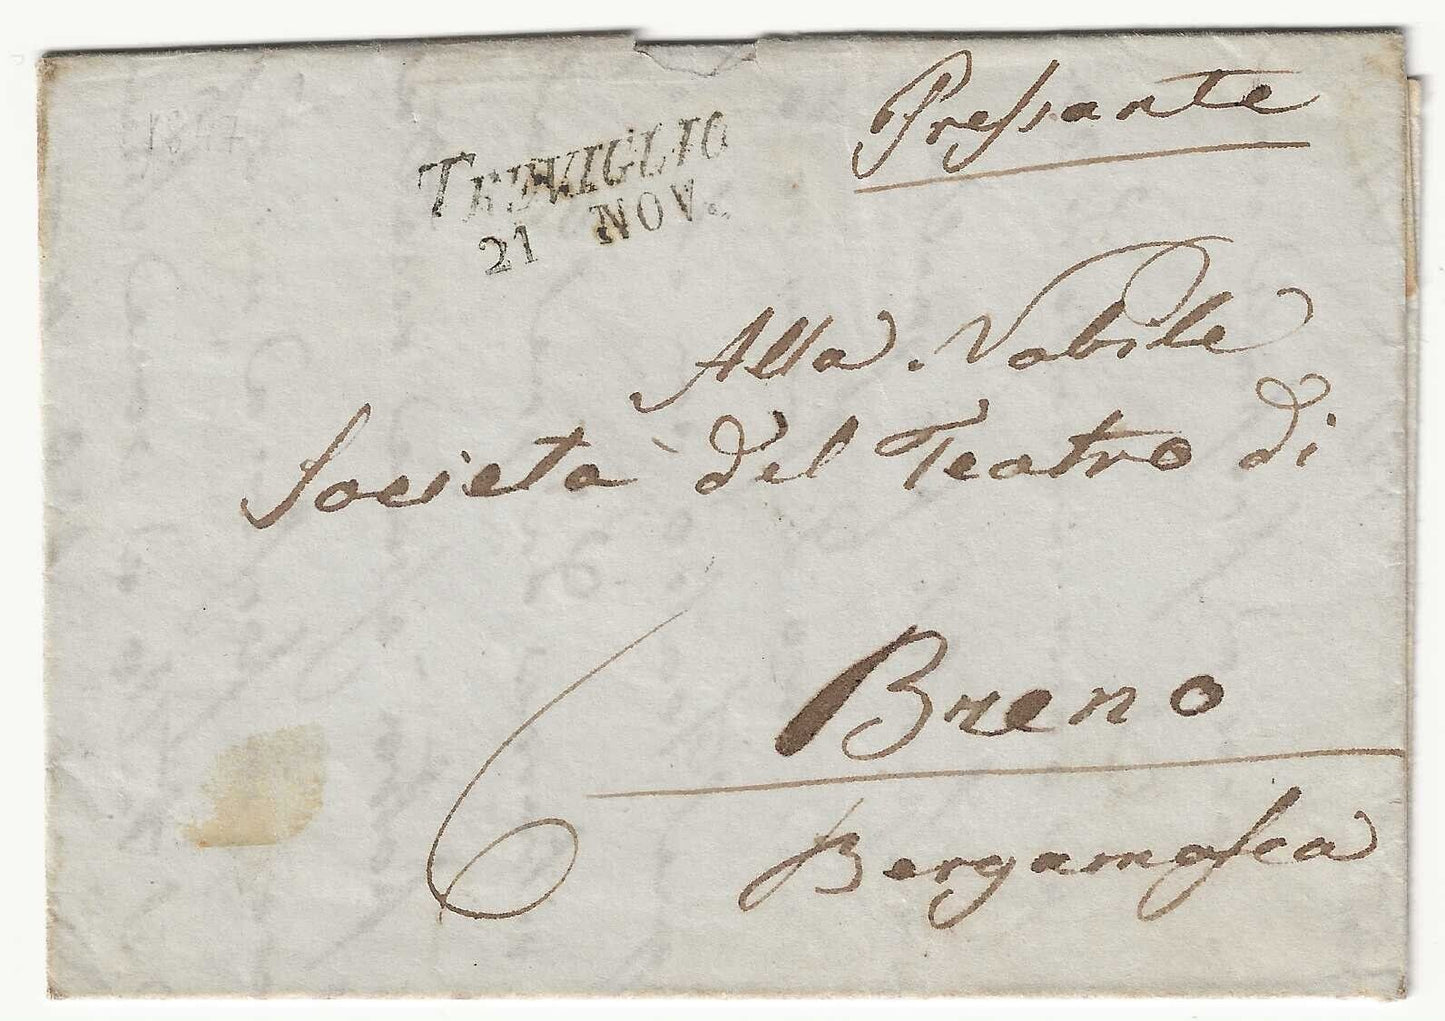 Pressante
TREVIGLIO
21 NOV.
Alla Nobile
Società del Teatro di
Breno
6
Bergamasca